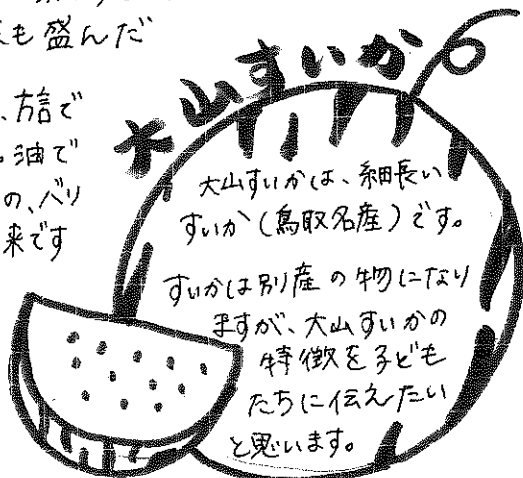 も盛んだ
、方言で
油で
の、バリ
来です
大山すいか
大山すいかは、細長い
すいか(鳥取名産)です。
すいかは別産の物になり
ますが、大山すいかの
特徴を子ども
たちに伝えたい
と思います。